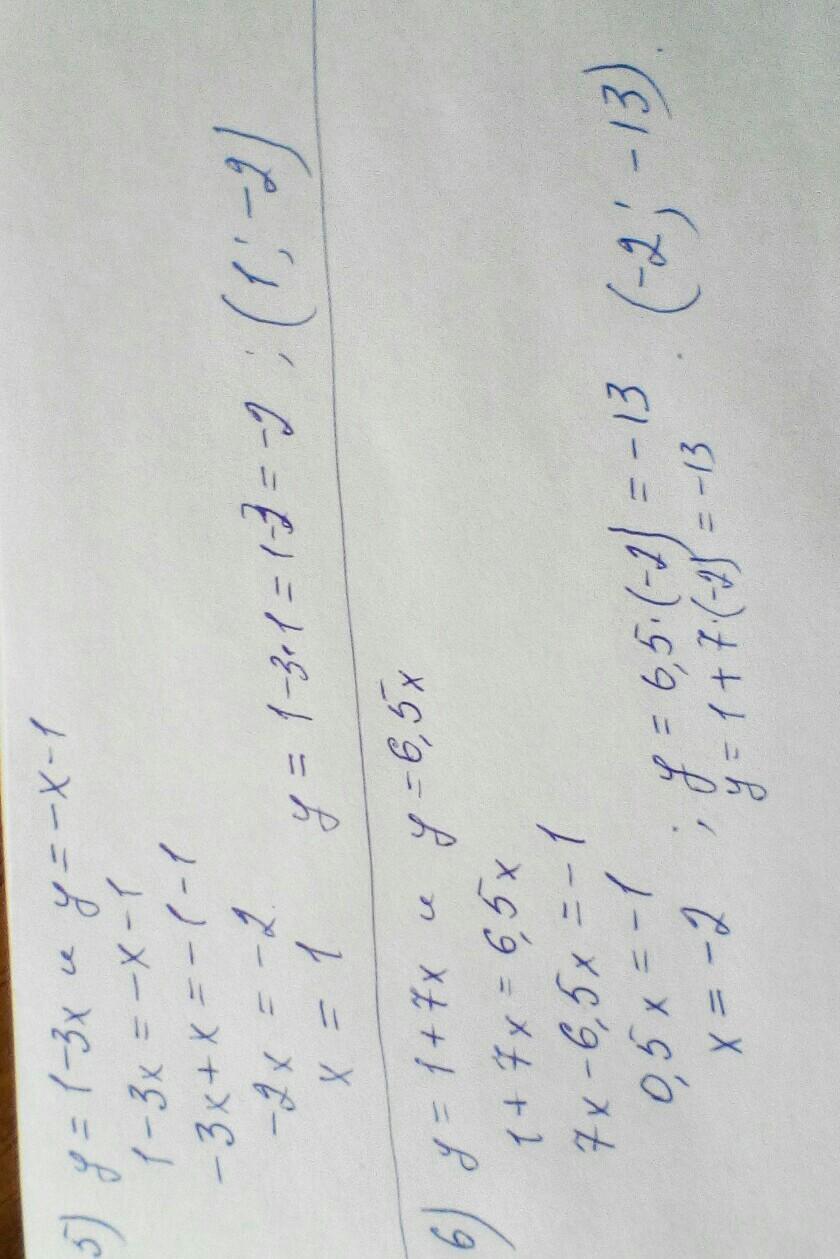 5) y = 1-3x и y = -x-1
1-3x = -x-1
-3x+x = -1-1
-2x = -2
x = 1 y = 1-3·1 = 1-3 = -2 ; (1; -2)
6) y = 1+7x и y = 6,5x
1+7x = 6,5x
7x-6,5x = -1
0,5x = -1
x = -2 ; y = 6,5·(-2) = -13 . (-2; -13).
y = 1+7·(-2) = -13